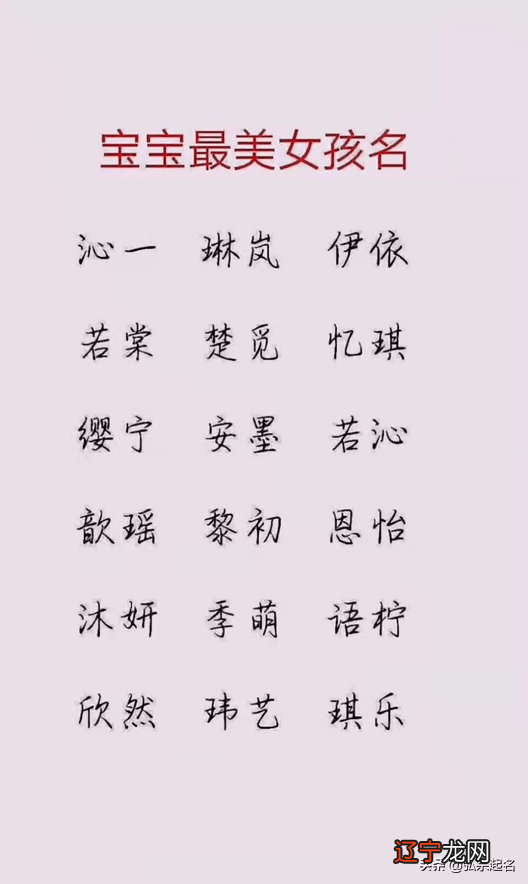 宝宝最美女孩名
沁一 琳岚 伊依
若棠 楚觅 忆琪
缨宁 安墨 若沁
歆瑶 黎初 恩怡
沐妍 季萌 语柠
欣然 玮艺 琪乐
辽宁龙网
头条 @弘宗起名